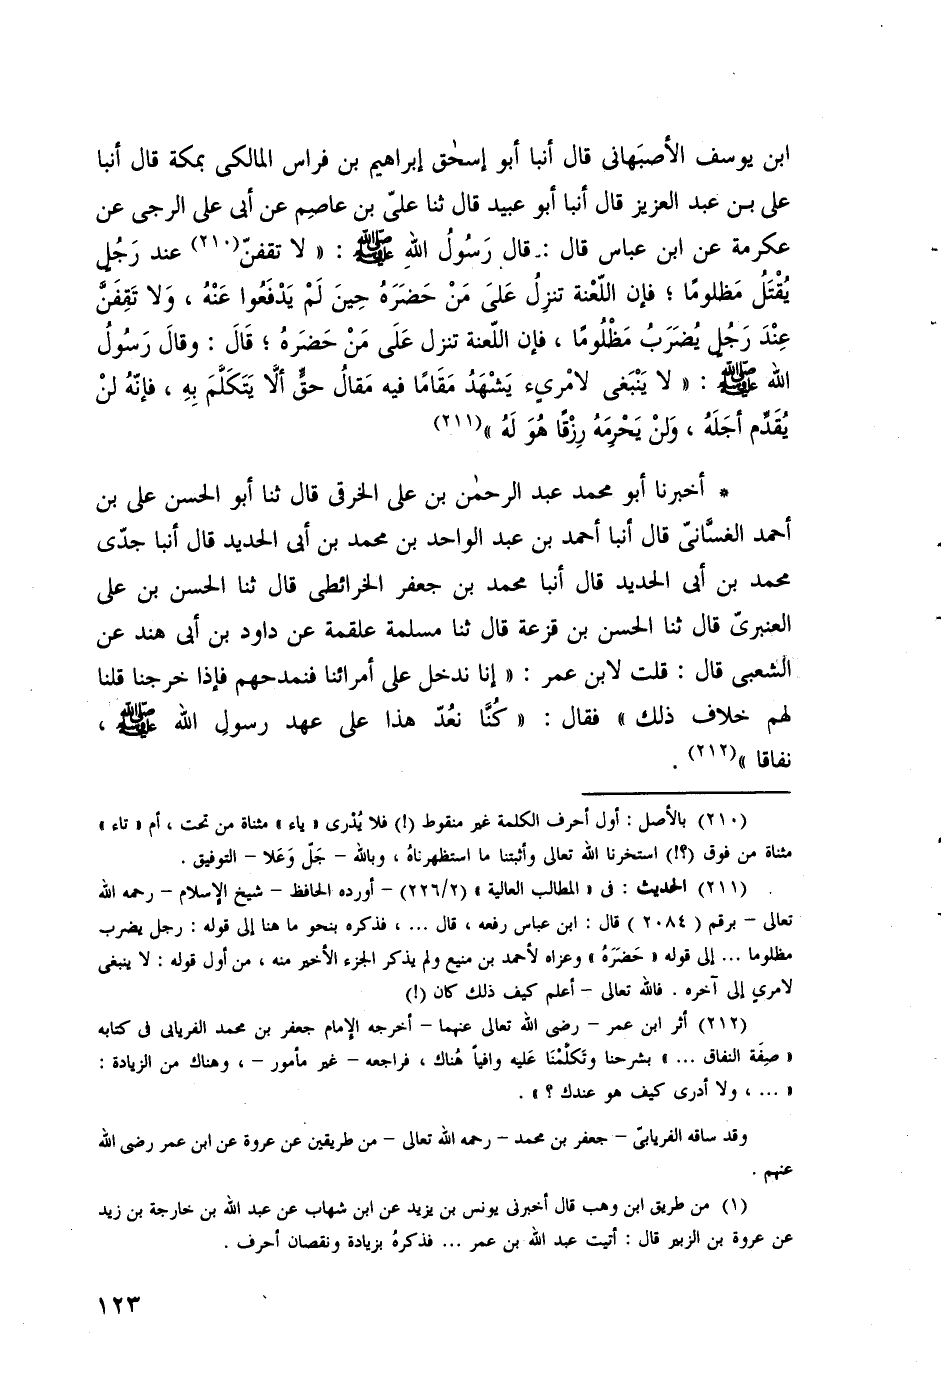 ابن يوسف الأصبَهانى قال أنبا أبو إسحٰق إبراهيم بن فراس المالكى بمكة قال أنبا
على بـن عبد العزيز قال أنبا أبو عبيد قال ثنا علىّ بن عاصِم عن أبى على الرحى عن
عكرمة عن ابن عباس قال :ـ قال رَسُولُ اللهِ ﷺ : « لا تقفنّ(٢١٠) عند رَجُلٍ
يُقْتَلُ مَظلومًا ؛ فإن اللّعْنة تنزِلُ عَلىَ مَنْ حَضَرَهُ حِينَ لَمْ يَدْفَعُوا عَنْهُ ، وَلا تَقِفَنَّ
عِنْدَ رَجُلٍ يُضرَبُ مَظْلُومًا ، فإن اللّعنة تنزل عَلَى مَنْ حَضرَهُ ؛ قَالَ : وقالَ رَسُولُ
الله ﷺ : « لا يَنْبَغى لامْرِىء يَشْهَدُ مَقَامًا فيه مَقالُ حقٍّ ألَّا يَتَكَلَّمَ بِهِ ، فإنّهُ لنْ
يُقَدِّم أجَلَهُ ، وَلنْ يَحْرِمَهُ رِزْقًا هُوَ لَهُ »(٢١١)
* أخبرنا أبو محمد عبد الرحمٰن بن على الخرقى قال ثنا أبو الحسن على بن
أحمد الغسَّانىّ قال أنبا أحمد بن عبد الواحد بن محمد بن أبى الحديد قال أنبا جدّى
محمد بن أبى الحديد قال أنبا محمد بن جعفر الخرائطى قال ثنا الحسن بن على
العنبرىّ قال ثنا الحسن بن قزعة قال ثنا مسلمة علقمة عن داود بن أبى هند عن
الشعبى قال : قلت لابن عمر : « إنا ندخل على أمرائنا فنمدحهم فإذا خرجنا قلنا
لهم خلاف ذلك » فقال : « كُنَّا نعُدّ هذا على عهد رسولِ الله ﷺ ،
نفاقا »(٢١٢) .
(٢١٠) بالأصل : أول أحرف الكلمة غير منقوط (!) فلا يُدْرى « ياء » مثناة من تحت ، أم « تاء »
مثناة من فوق (؟!) استخرنا الله تعالى وأثبتنا ما استظهرناهُ ، وبالله – جَلّ وَعَلا – التوفيق .
(٢١١) الحديث : فى « المطالب العالية » (٢٢٦/٢) – أورده الحافظ – شيخ الإسلام – رحمه الله
تعالى – برقم ( ٢٠٨٤ ) قال : ابن عباس رفعه ، قال ... ، فذكره بنحو ما هنا إلى قوله : رجل يضرب
مظلوما ... إلى قوله « حَضَرَهُ » وعزاه لأحمد بن منيع ولم يذكر الجزء الأخير منه ، من أول قوله : لا ينبغى
لامرىٍ إلى آخره . فالله تعالى – أعلم كيف ذلك كان (!)
(٢١٢) أثر ابن عمر – رضى الله تعالى عنهما – أخرجه الإمام جعفر بن محمد الفريابى فى كتابه
« صِفَة النفاق ... » بشرحنا وتَكلّمْنَا عَليه وافياً هُناك ، فراجعه – غير مأمور – ، وهناك من الزيادة :
« ... ، ولا أدرى كيف هو عندك ؟ » .
وقد ساقه الفريابىّ – جعفر بن محمد – رحمه الله تعالى – من طريقين عن عروة عن ابن عمر رضى الله
عنهم .
(١) من طريق ابن وهب قال أخبرنى يونس بن يزيد عن ابن شهاب عن عبد الله بن خارجة بن زيد
عن عروة بن الزبير قال : أتيت عبد الله بن عمر ... فذكرهُ بزيادة ونقصان أحرف .
١٢٣